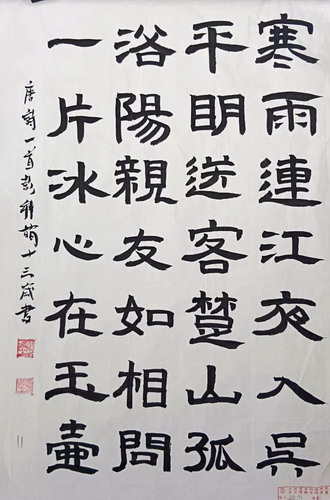 寒雨連江夜入吳
平明送客楚山孤
洛陽親友如相問
一片冰心在玉壺
唐詩一首彭 萌十三歲書